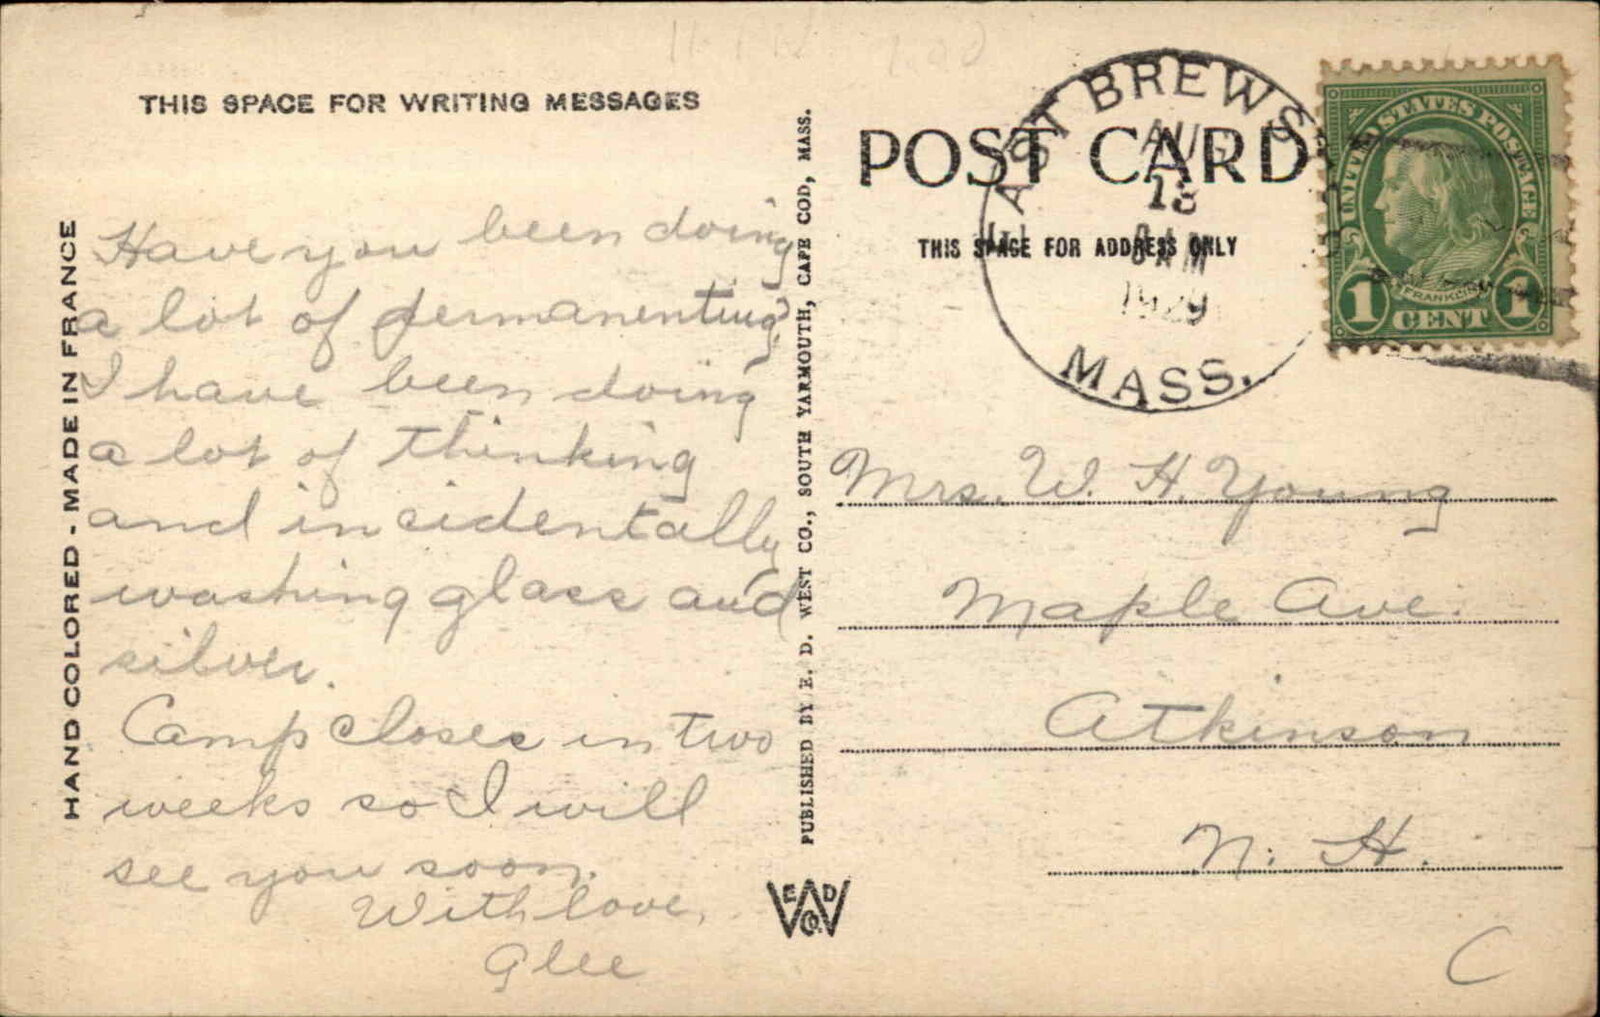 THIS SPACE FOR WRITING MESSAGES
Have you been doing
a lot of permanenting?
I have been doing
a lot of thinking
and incidentally
washing glass and
silver.
Camp closes in two
weeks so I will
see you soon.
With love,
Glee
HAND COLORED - MADE IN FRANCE
PUBLISHED BY E. D. WEST CO., SOUTH YARMOUTH, CAPE COD, MASS.
E D W Co.
POST CARD
THIS SPACE FOR ADDRESS ONLY
EAST BREWS
AUG
13
8 AM
1929
MASS.
UNITED STATES POSTAGE
FRANKLIN
1 CENT 1
Mrs. W. H. Young
Maple Ave.
Atkinson
N. H.
C